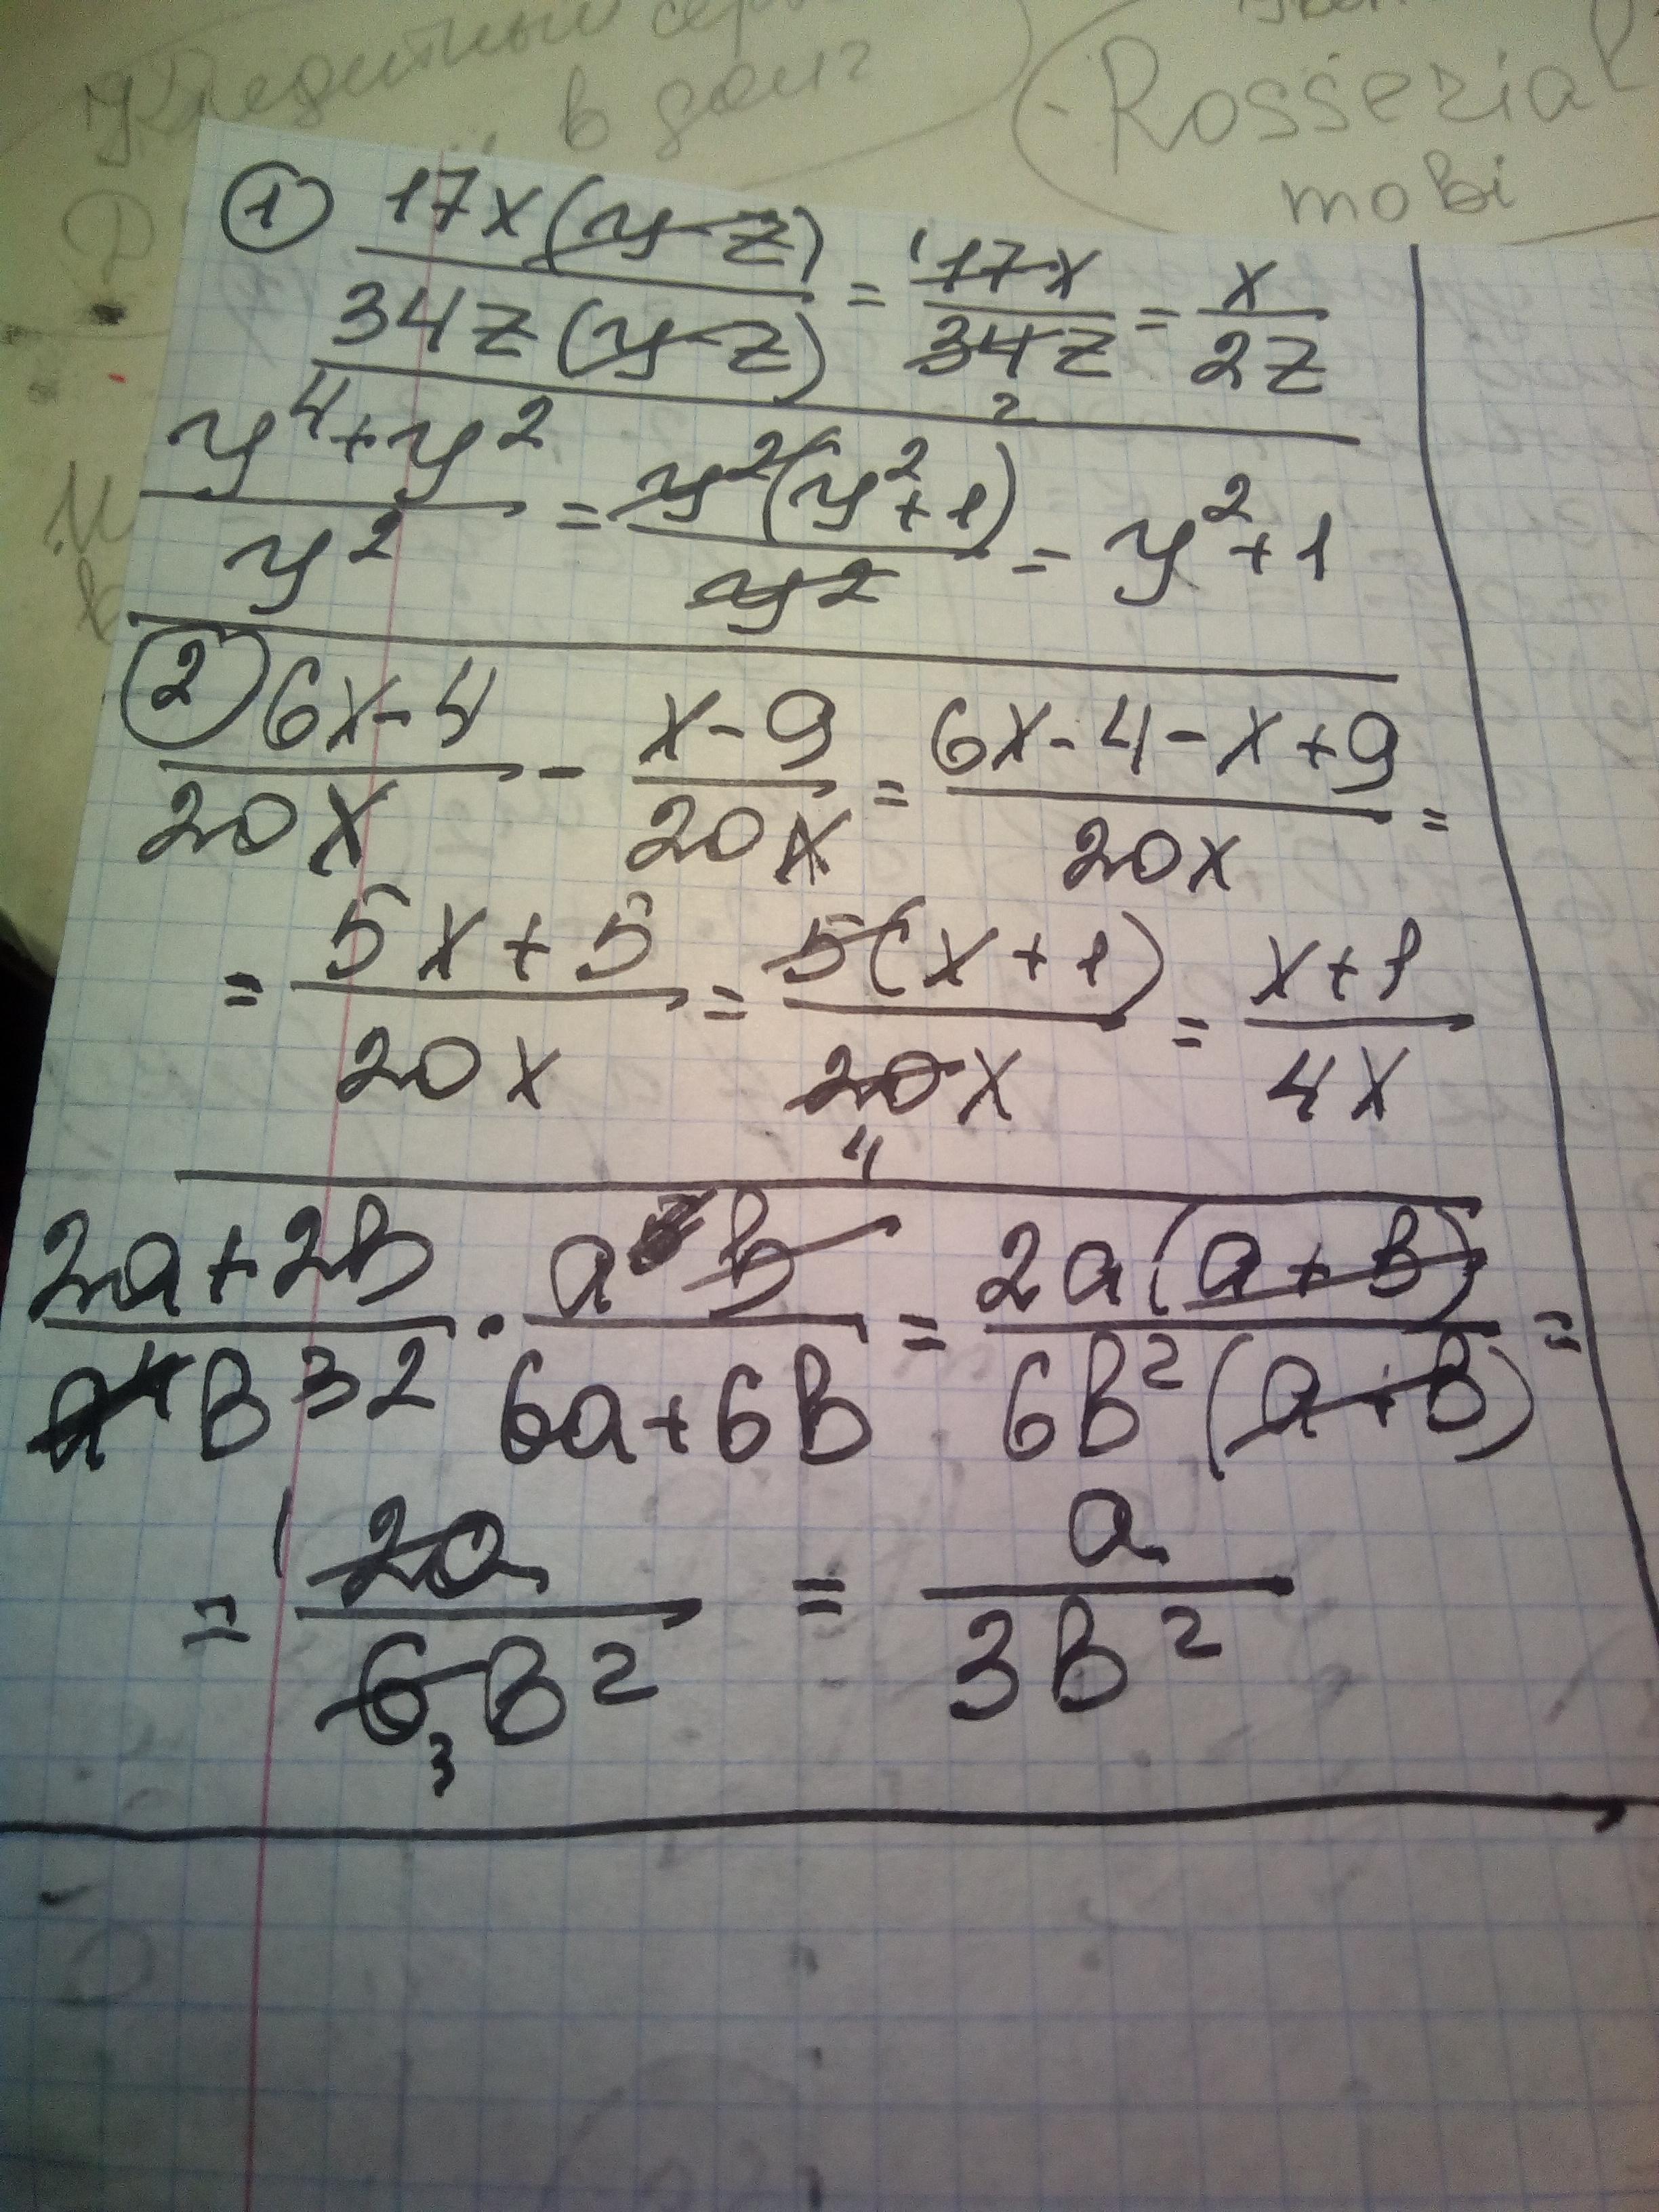 Кредитный
в долг
Rosseria
mobi
① 17x(y-z) / 34z(y-z) = 17x / 34z = x / 2z
1 2
y⁴+y² / y² = y²(y²+1) / y² = y²+1
② 6x-4 / 20x - x-9 / 20x = 6x-4-x+9 / 20x =
= 5x+5 / 20x = 5(x+1) / 20x = x+1 / 4x
4
2a+2b / a⁴b³ 2 · a⁵ b / 6a+6b = 2a(a+b) / 6b²(a+b) =
= 2a / 6b² = a / 3b²
1 3